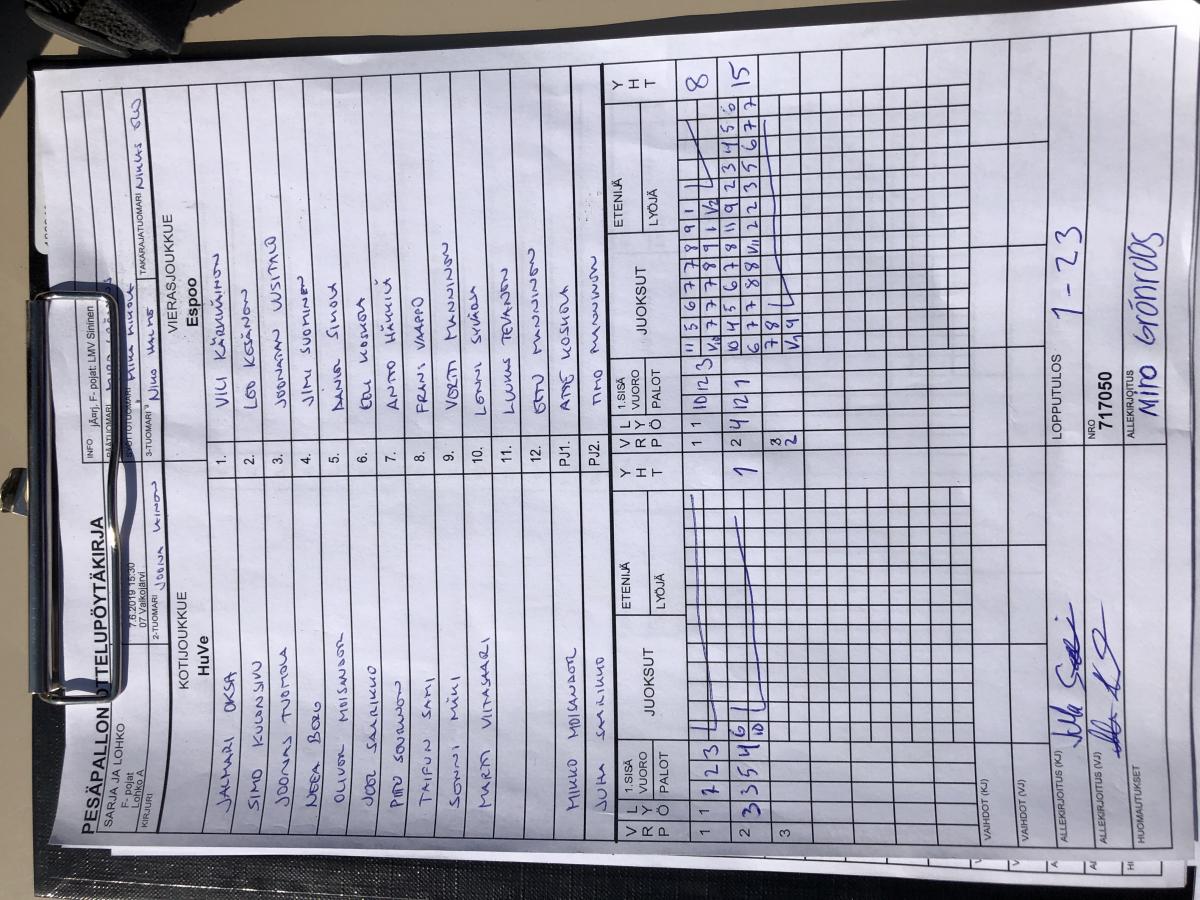 PESÄPALLON OTTELUPÖYTÄKIRJA
SARJA JA LOHKO
F- pojat
Lohko A
7.6.2019 15:30
07 Valkojärvi
INFO jÄrj. F- pojat: LMV Sininen
KIRJURI
2-TUOMARI JOONA
3-TUOMARI NIKO
TAKARAJATUOMARI NIKLAS
KOTIJOUKKUE
HuVe
VIERASJOUKKUE
Espoo
JALMARI OKSA 1. VILI KÄRKKÄINEN
SIMO KULONSIVU 2. LEO KESÄNEN
JOONAS TUOMOLA 3. JOONATAN UUSITALO
NEEA BORG 4. JIMI SUOMINEN
OLIVER MOISANDER 5. DANIEL SIKOLA
JOEL SAARIKKO 6. EELI KOSKELA
7. ANTTO HÄKKILÄ
TAIFUN SAMI 8. FRANS VAAPPO
SONNI MÄKI 9. VERTTI MANNINEN
MARTTI VIITASAARI 10. LENNI SYVÄOJA
11. LUUKAS TEVANEN
12. EETU MANNINEN
MIKKO MOISANDER PJ1. ATTE KOSKELA
JUHA SAARIKKO PJ2. TIMO MANNINEN
V R P L Y Ö 1.SISÄ VUORO PALOT JUOKSUT ETENIJÄ LYÖJÄ Y H T V R P L Y Ö 1.SISÄ VUORO PALOT JUOKSUT ETENIJÄ LYÖJÄ Y H T
1 1 7 2 3 1 1 10 12 3 11 5 6 7 7 8 9 1 8
7 7 7 8 9 1 1/2
2 3 3 5 4 6 1 2 4 12 1 10 4 5 6 7 8 11 9 2 3 4 5 6 15
10 6 7 7 8 8 1/11 2 2 3 5 6 7 7
3 3 2 7 8
9
VAIHDOT (KJ)
VAIHDOT (VJ)
ALLEKIRJOITUS (KJ) LOPPUTULOS 1 - 23
ALLEKIRJOITUS (VJ) NRO 717050
HUOMAUTUKSET ALLEKIRJOITUS MIRO GRÖNROOS